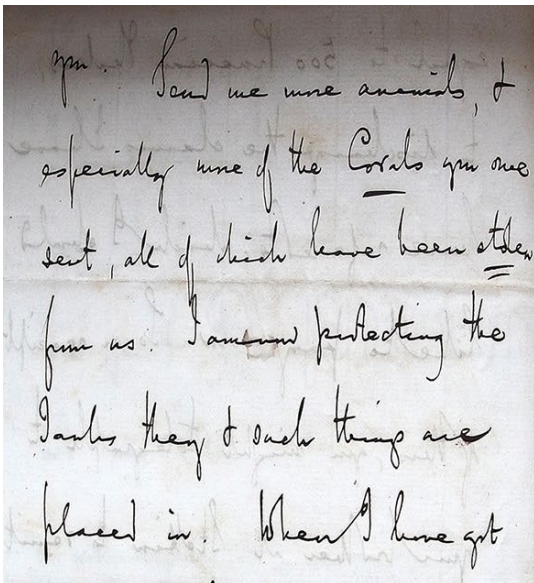 you. Send me more animals, &
especially more of the Corals you once
sent, all of which have been stolen
from us. I am now protecting the
Tanks they & such things are
placed in. When I have got